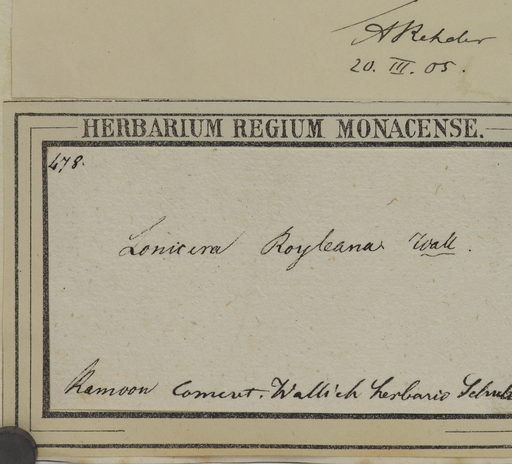 A Rehder
20. III. 05.
HERBARIUM REGIUM MONACENSE.
478.
Lonicera Royleana Wall.
Kamoon Wallich herbario